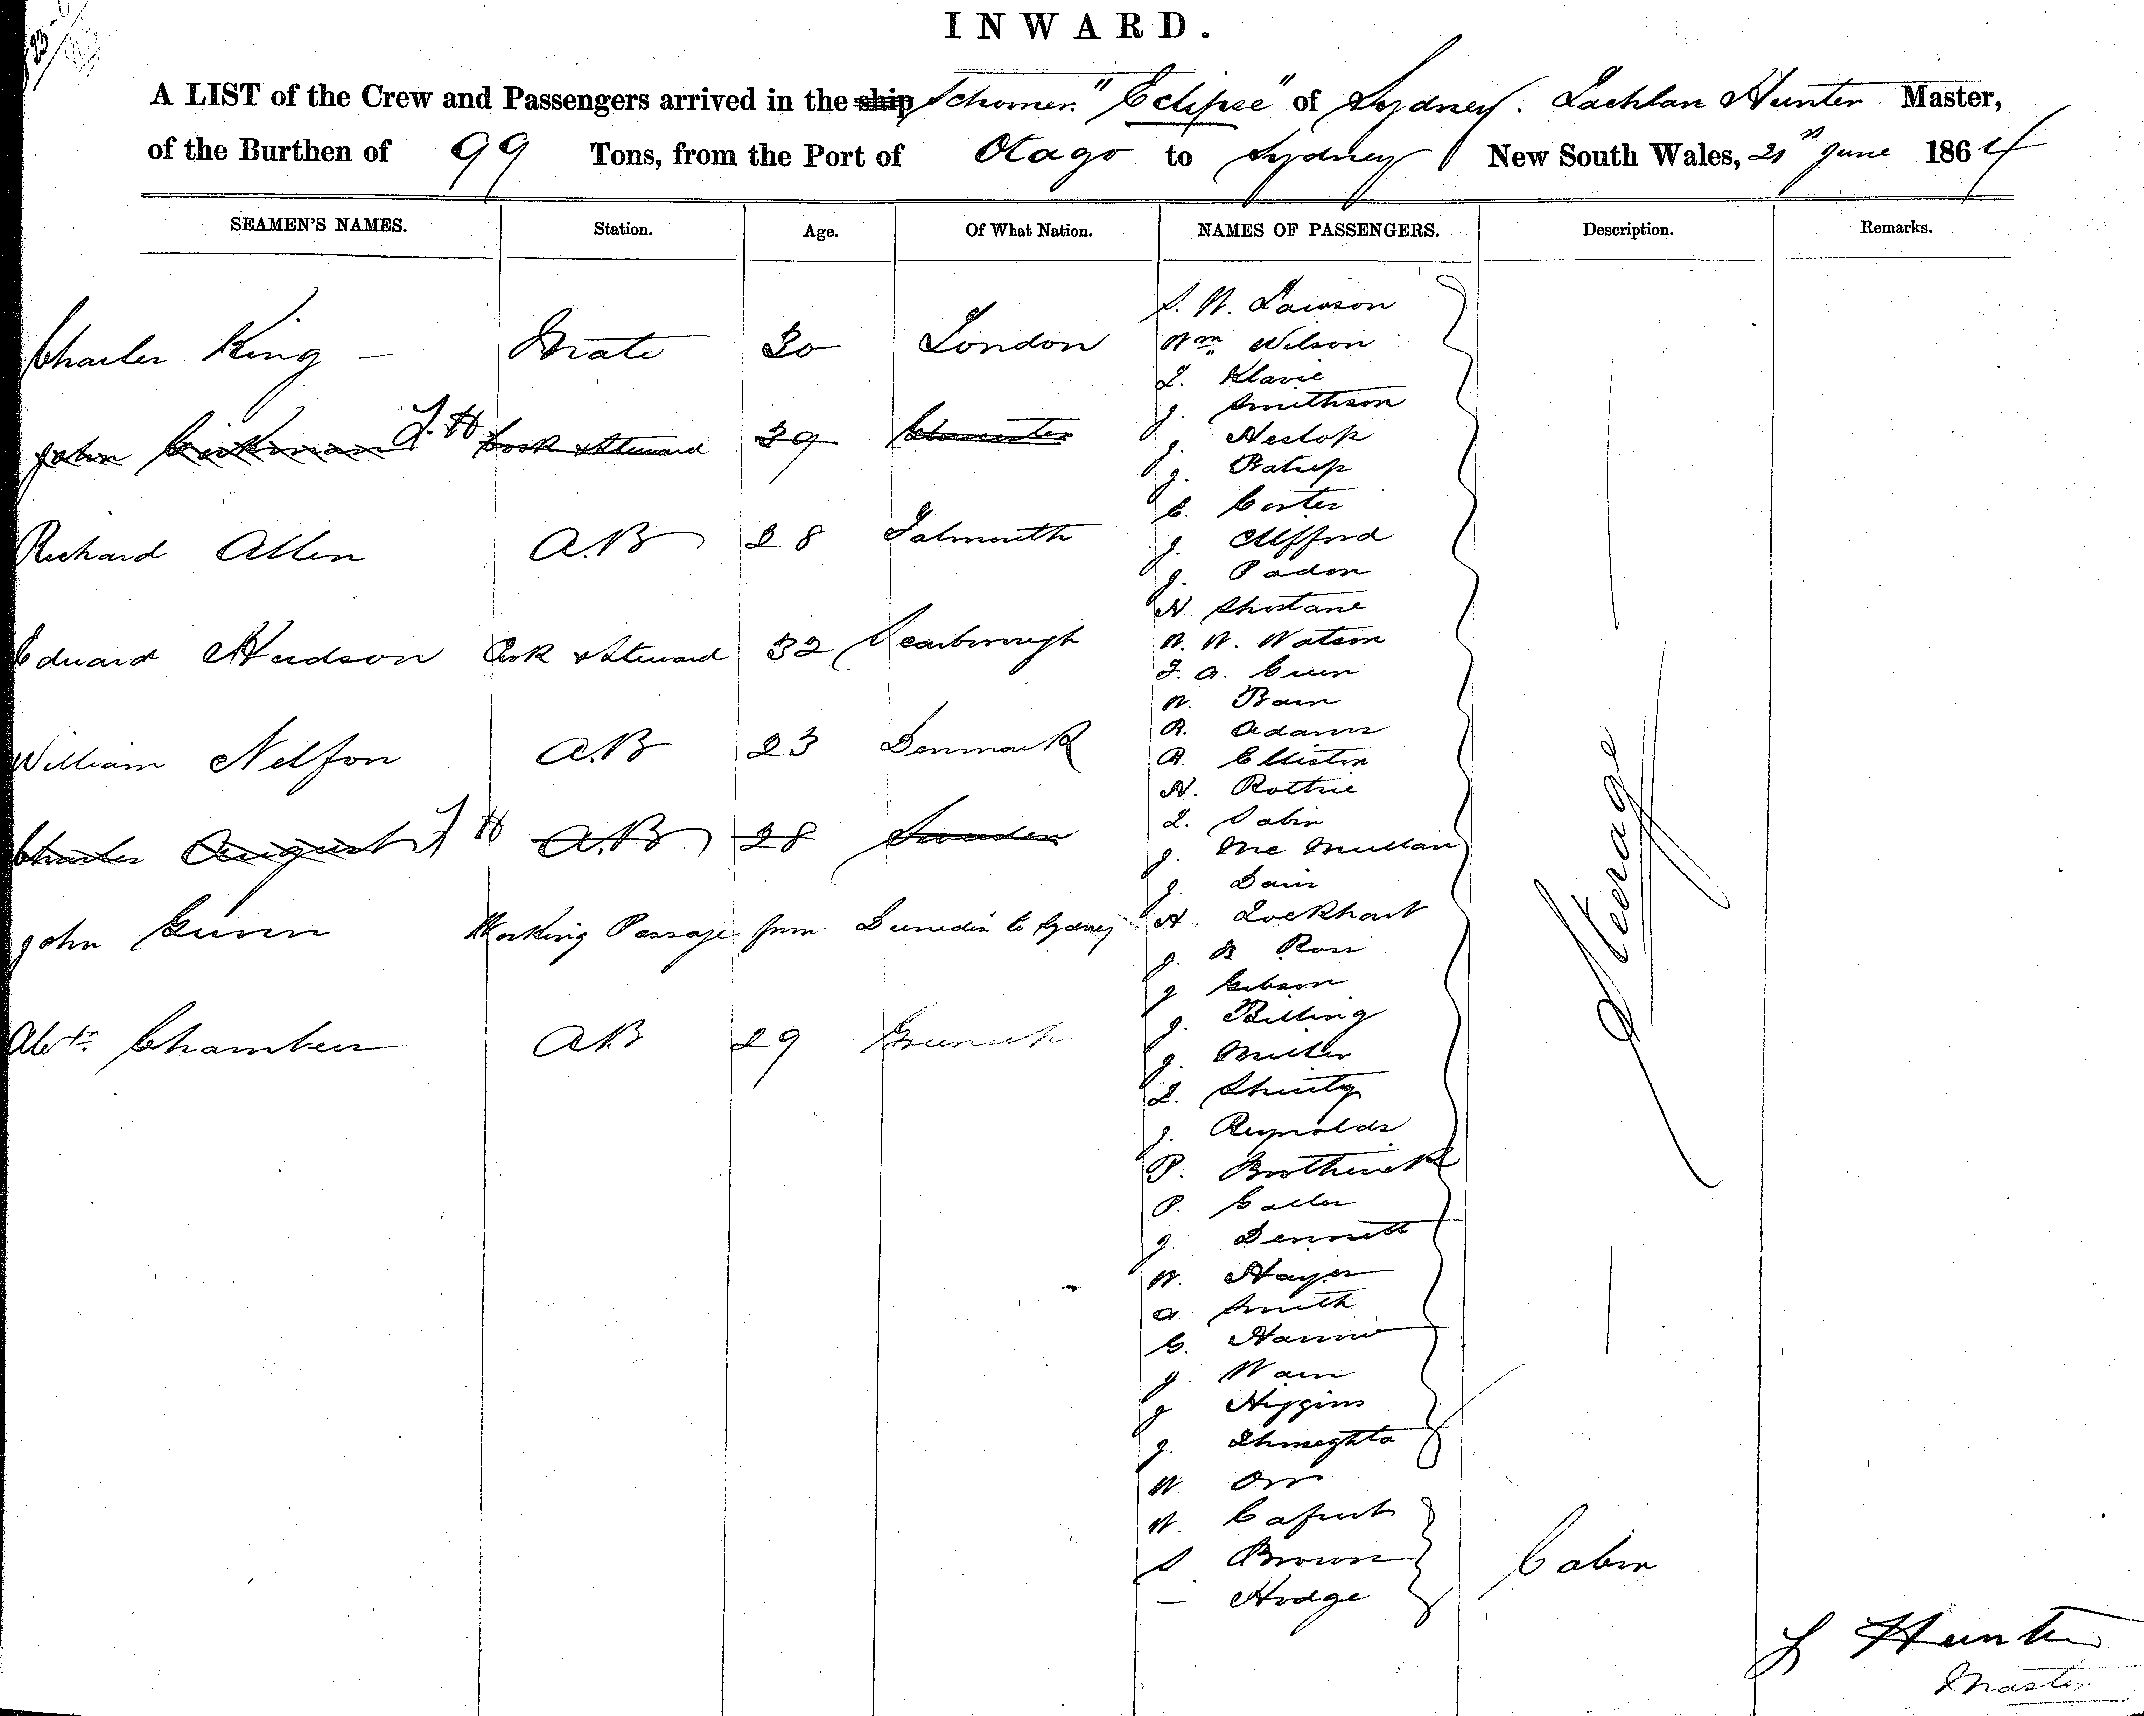 INWARD.
A LIST of the Crew and Passengers arrived in the ship Schooner "Eclipse" of Sydney. Lachlan Hunter Master,
of the Burthen of 99 Tons, from the Port of Otago to Sydney New South Wales, 21st June 1864
SEAMEN'S NAMES. Station. Age. Of What Nation. NAMES OF PASSENGERS. Description. Remarks.
Charles King - Mate 30 London
John L. H Cook & Steward 39
Richard Allen A.B 28 Falmouth
Edward Hudson Cook & Steward 32 Scarborough
William Nelson A.B 23 Denmark
Charles August A.B. 28 Sweden
John Gunn Working Passage from Dunedin to Sydney
Alexr. Chambers A.B 29
S. W. Lawson
Wm Wilson
L. Klavie
J. Smithson
J. Heslop
J.
C.
J. Clifford
J. Padon
H.
W. W. Watson
J. A.
W. Bain
R. Adams
R. Elliston
H.
L.
J. Mc Mullan
J. Dain
A. Lockhart
J. R Ross
J Gibson
J. Billing
J. Miller
L.
J. Reynolds
P. Borthwick
P.
J. Dennett
W. Hayes
A Smith
C.
J.
J Higgins
J.
W Orr
Steerage
W.
S Brown
— Hodge
Cabin
L Hunter
Master